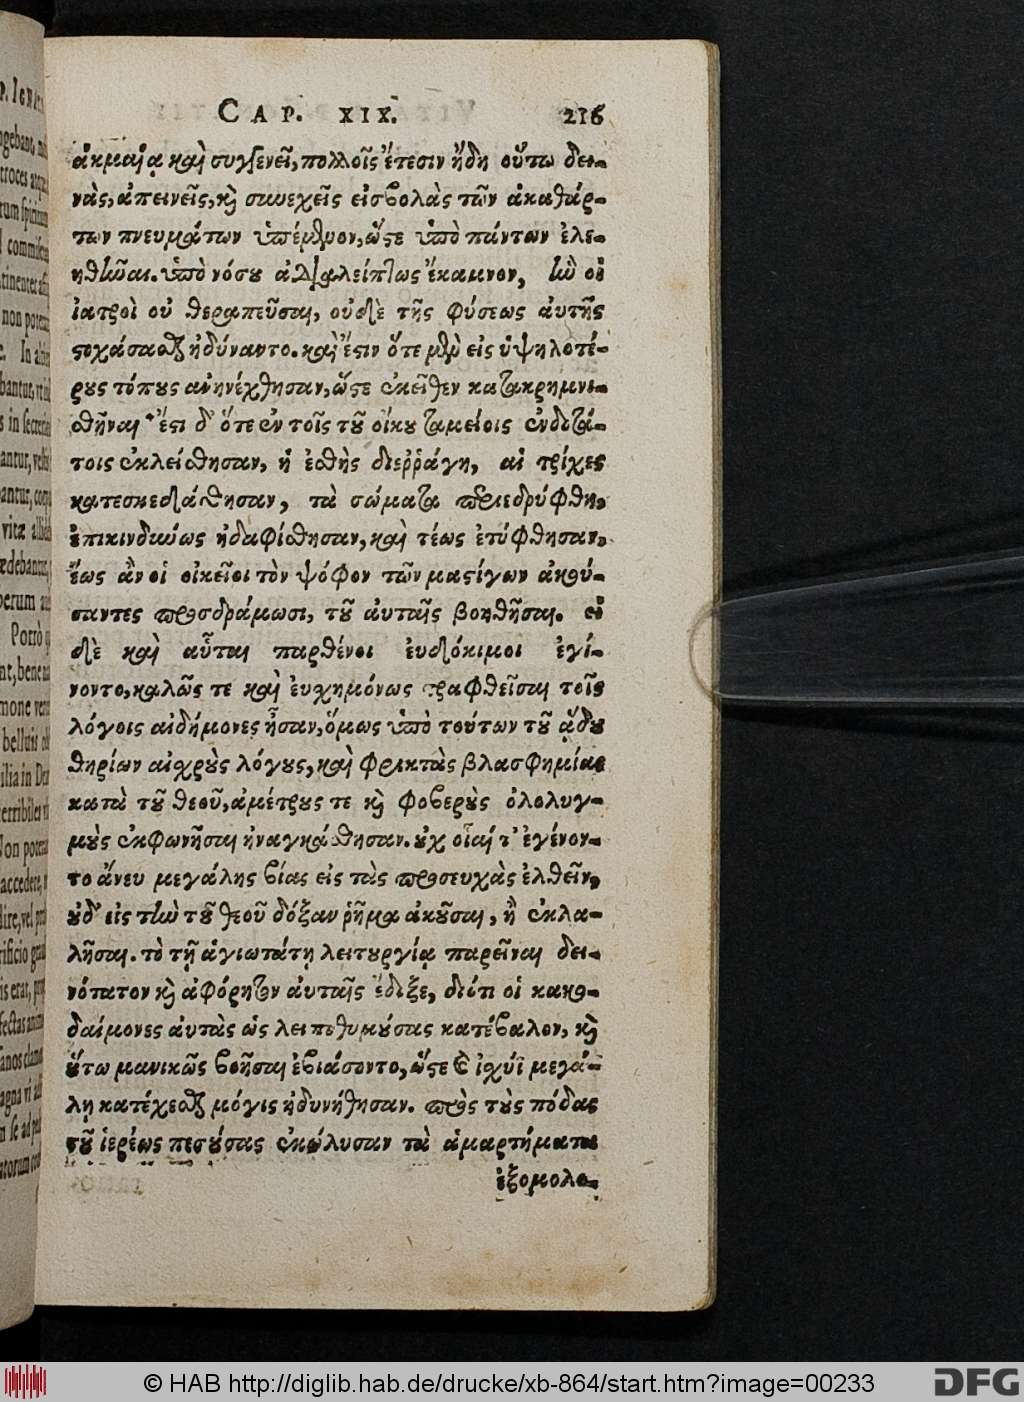 CAP. XIX. 216
ἀκμαίᾳ καὶ συγγενεῖ, πολλοῖς ἔτεσιν ἤδη οὕτω δει-
νὰς, ἀπεινεῖς, καὶ συνεχεῖς εἰσβολὰς τῶν ἀκαθάρ-
των πνευμάτων ὑπέμενον, ὥστε ὑπὸ πάντων ἐλε-
ηθῆναι. ὑπὸ νόσου ἀδιαλείπτως ἔκαμνον, ἣν οἱ
ἰατροὶ οὐ θεραπεῦσαι, οὐδὲ τῆς φύσεως ἀυτῆς
στοχάσασθαι ἠδύναντο. καὶ ἔστιν ὅτε μὲν εἰς ὑψηλοτέ-
ρους τόπους ἀνηνέχθησαν, ὥστε ἐκεῖθεν κατακρημνι-
σθῆναι· ἔστι δ' ὅτε ἐν τοῖς τοῦ οἴκου ταμείοις ἐνδοτά-
τοις ἐκλείσθησαν, ἡ ἐσθὴς διεῤῥάγη, αἱ τρίχες
κατεσκεδάσθησαν, τὰ σώματα περιεδρύφθη,
ἐπικινδύνως ἠδαφίσθησαν, καὶ τέως ἐτύφθησαν,
ἕως ἂν οἱ οἰκεῖοι τὸν ψόφον τῶν μαστίγων ἀκού-
σαντες προσδράμωσι, τοῦ ἀυταῖς βοηθῆσαι. εἰ
δὲ καὶ αὗται παρθένοι ἐυδόκιμοι ἐγί-
νοντο, καλῶς τε καὶ ἐυσχημόνως τραφθεῖσαι τοῖς
λόγοις αἰδήμονες ἦσαν, ὅμως ὑπὸ τούτων τοῦ ᾅδου
θηρίων αἰσχροὺς λόγους, καὶ φρικτὰς βλασφημίας
κατὰ τοῦ θεοῦ, ἀμέτρους τε καὶ φοβεροὺς ὀλολυγ-
μοὺς ἐκφωνῆσαι ἠναγκάσθησαν. οὐχ οἷαί τ' ἐγένον-
το ἄνευ μεγάλης βίας εἰς τὰς προσευχὰς ἐλθεῖν,
οὐδ' εἰς τὴν τοῦ θεοῦ δόξαν ῥῆμα ἀκοῦσαι, ἢ ἐκλα-
λῆσαι. τὸ τῇ ἁγιωτάτῃ λειτουργίᾳ παρεῖναι δει-
νότατον καὶ ἀφόρητον ἀυταῖς ἔδοξε, διότι οἱ κακο-
δαίμονες ἀυτὰς ὡς λειποθυμούσας κατέβαλον, καὶ
οὕτω μανικῶς βοῆσαι ἐβιάσαντο, ὥστε ἐν ἰσχύϊ μεγά-
λῃ κατέχεσθαι μόγις ἠδυνήθησαν. πρὸς τοὺς πόδας
τοῦ ἱερέως πεσούσας ἐκώλυσαν τὰ ἁμαρτήματα
ἐξομολο-
P. IGNAT
non poter
In ali
s in secret
vitæ
debantur
Porrò
belluis
ilia in
Non
accedere
dire, vel
rificio
is erat,
© HAB http://diglib.hab.de/drucke/xb-864/start.htm?image=00233
DFG